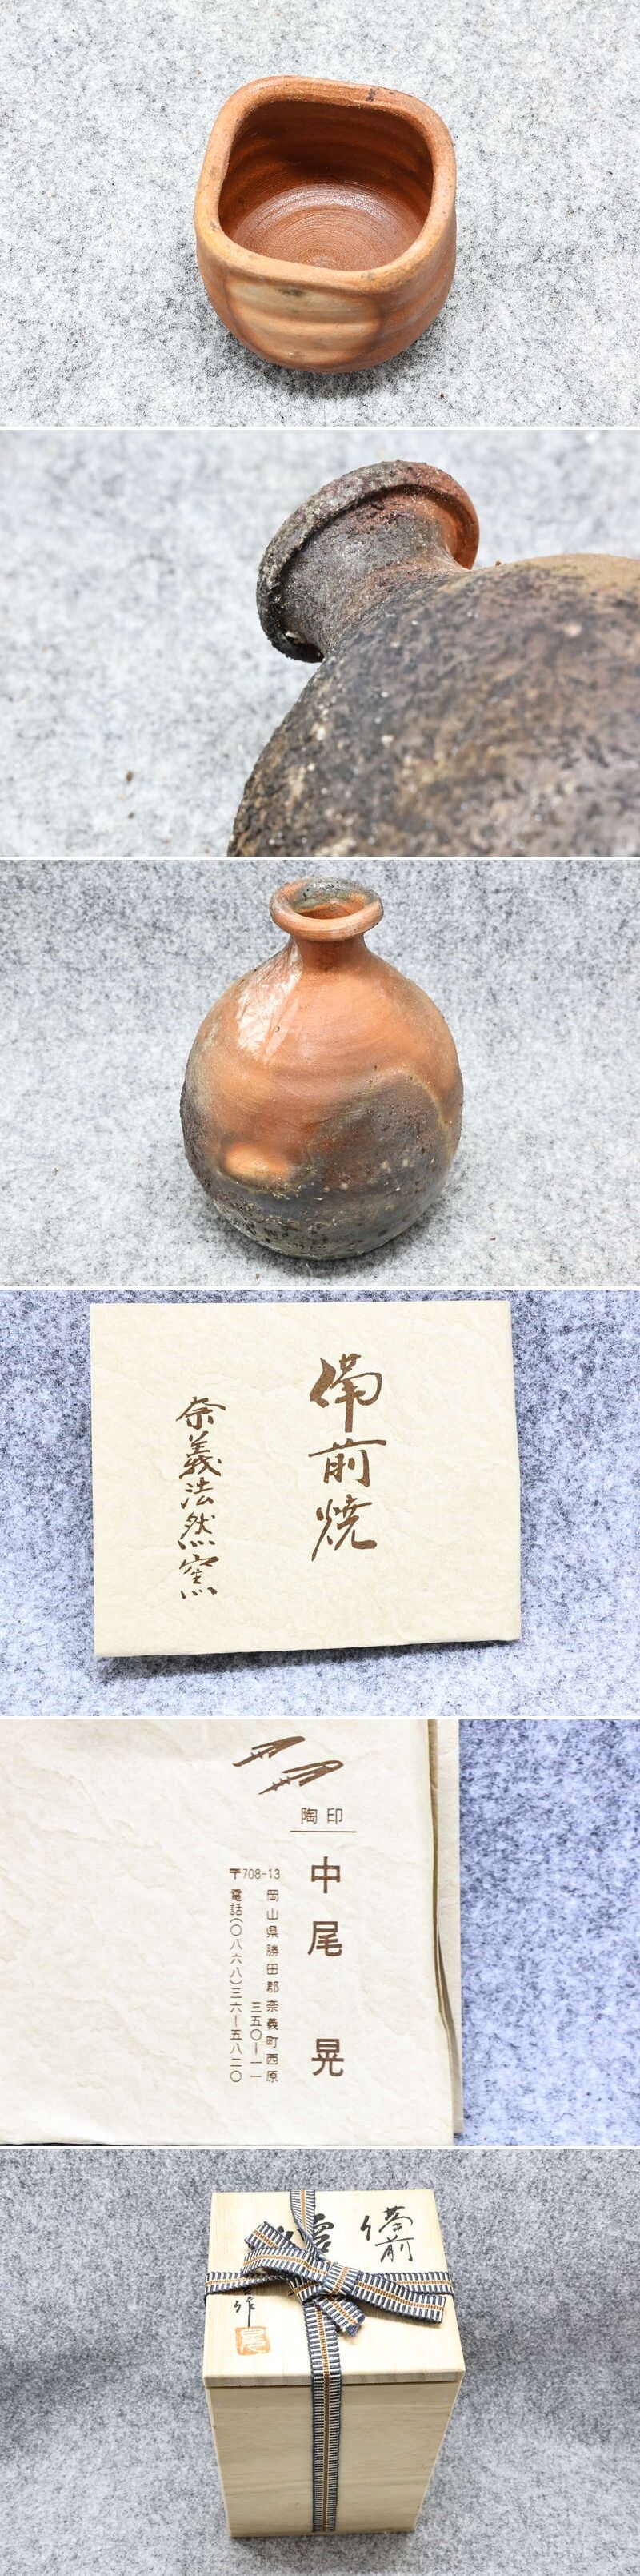 備前焼
奈義法然窯
陶印
中尾 晃
岡山県勝田郡奈義町西原
三五〇ー一一
〒708-13
電話(〇八六八)三六ー五八二〇
備前
作